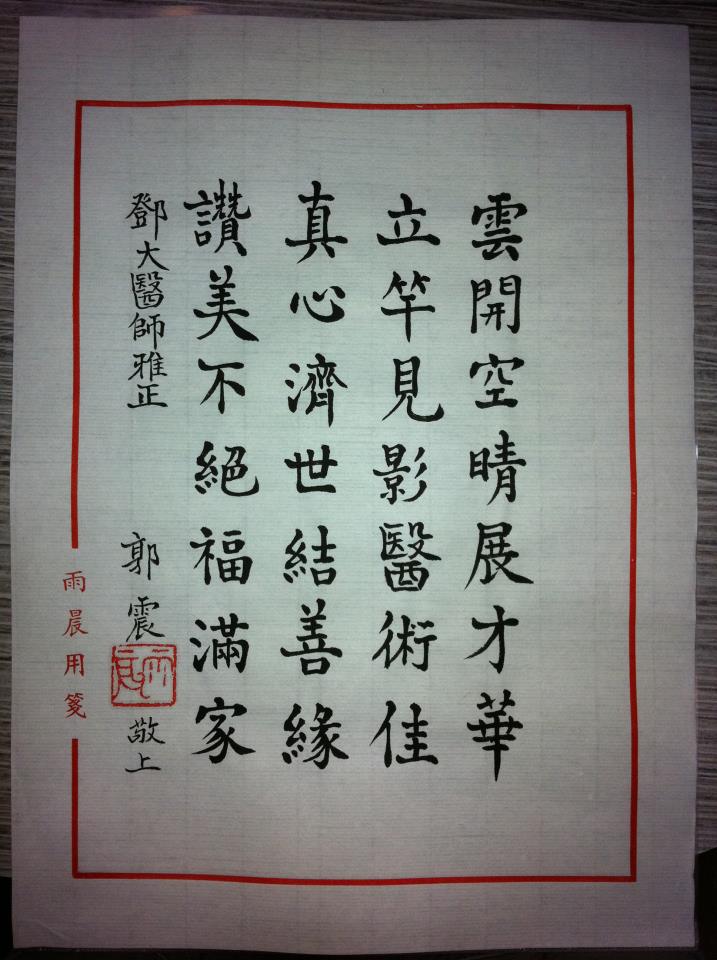 雲開空晴展才華
立竿見影醫術佳
真心濟世結善緣
讚美不絕福滿家
鄧大醫師雅正
郭震 敬上
雨晨用箋